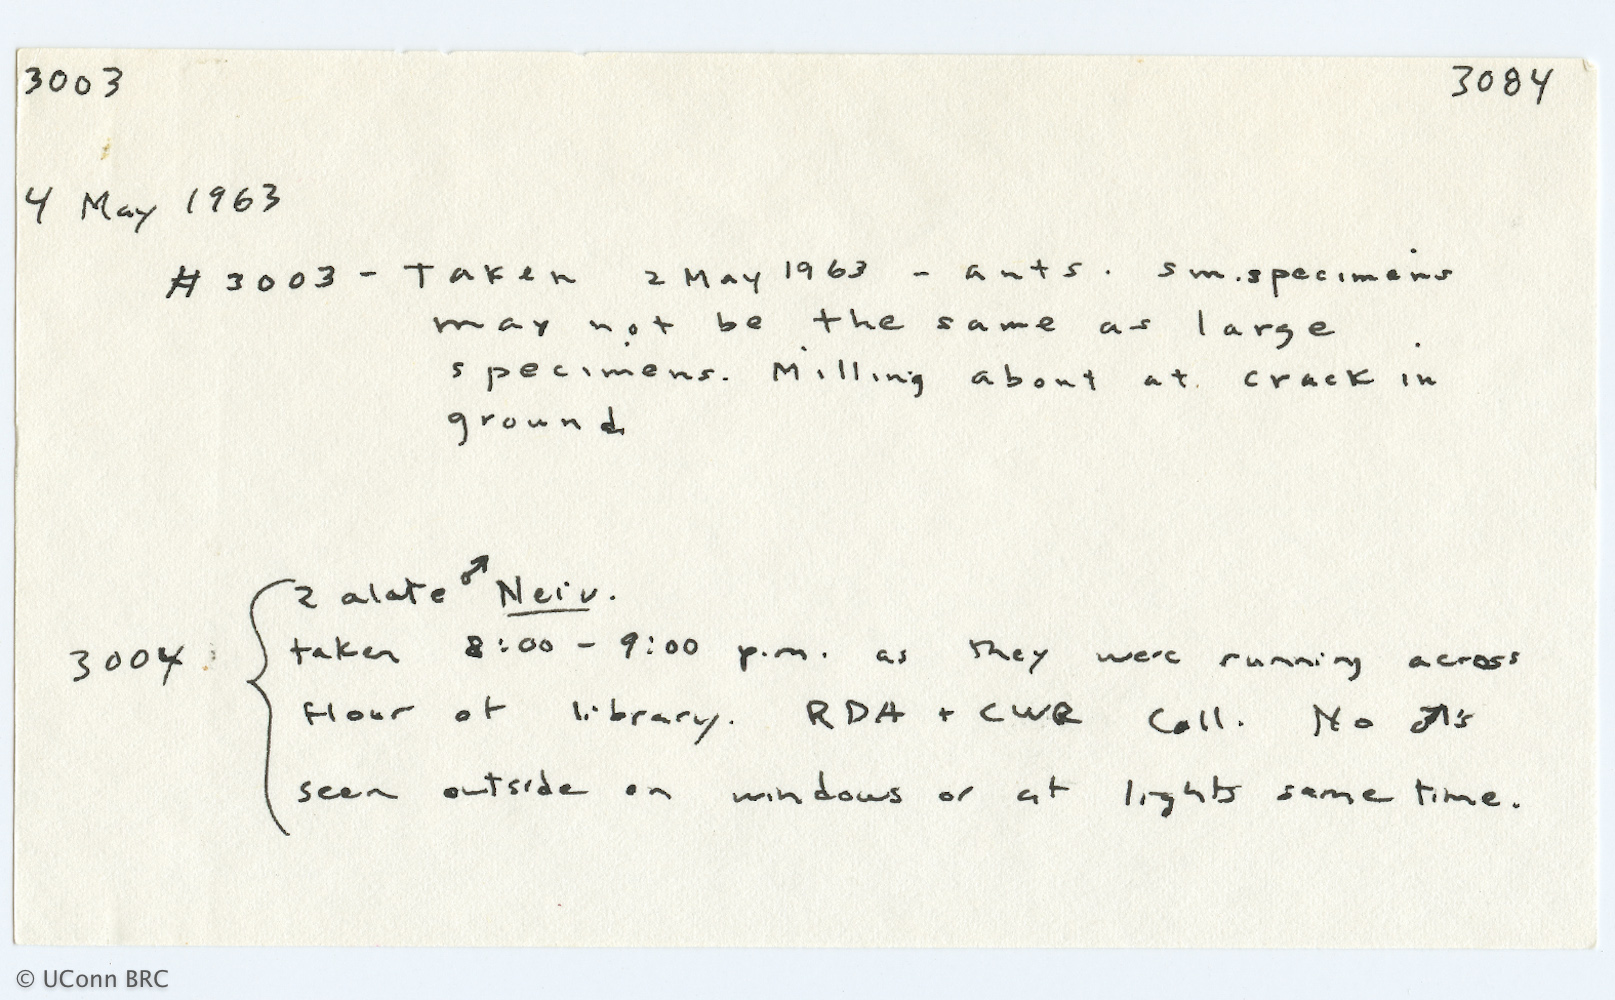 3003 3084
4 May 1963
# 3003 - Taken 2 May 1963 - ants. sm. specimens
may not be the same as large
specimens. Milling about at crack in
ground
2 alate ♂ Neiv.
3004 taken 8:00 - 9:00 p.m. as they were running across
flour of library. RDA + CWR Coll. No ♂'s
seen outside on windows or at lights same time.
© UConn BRC